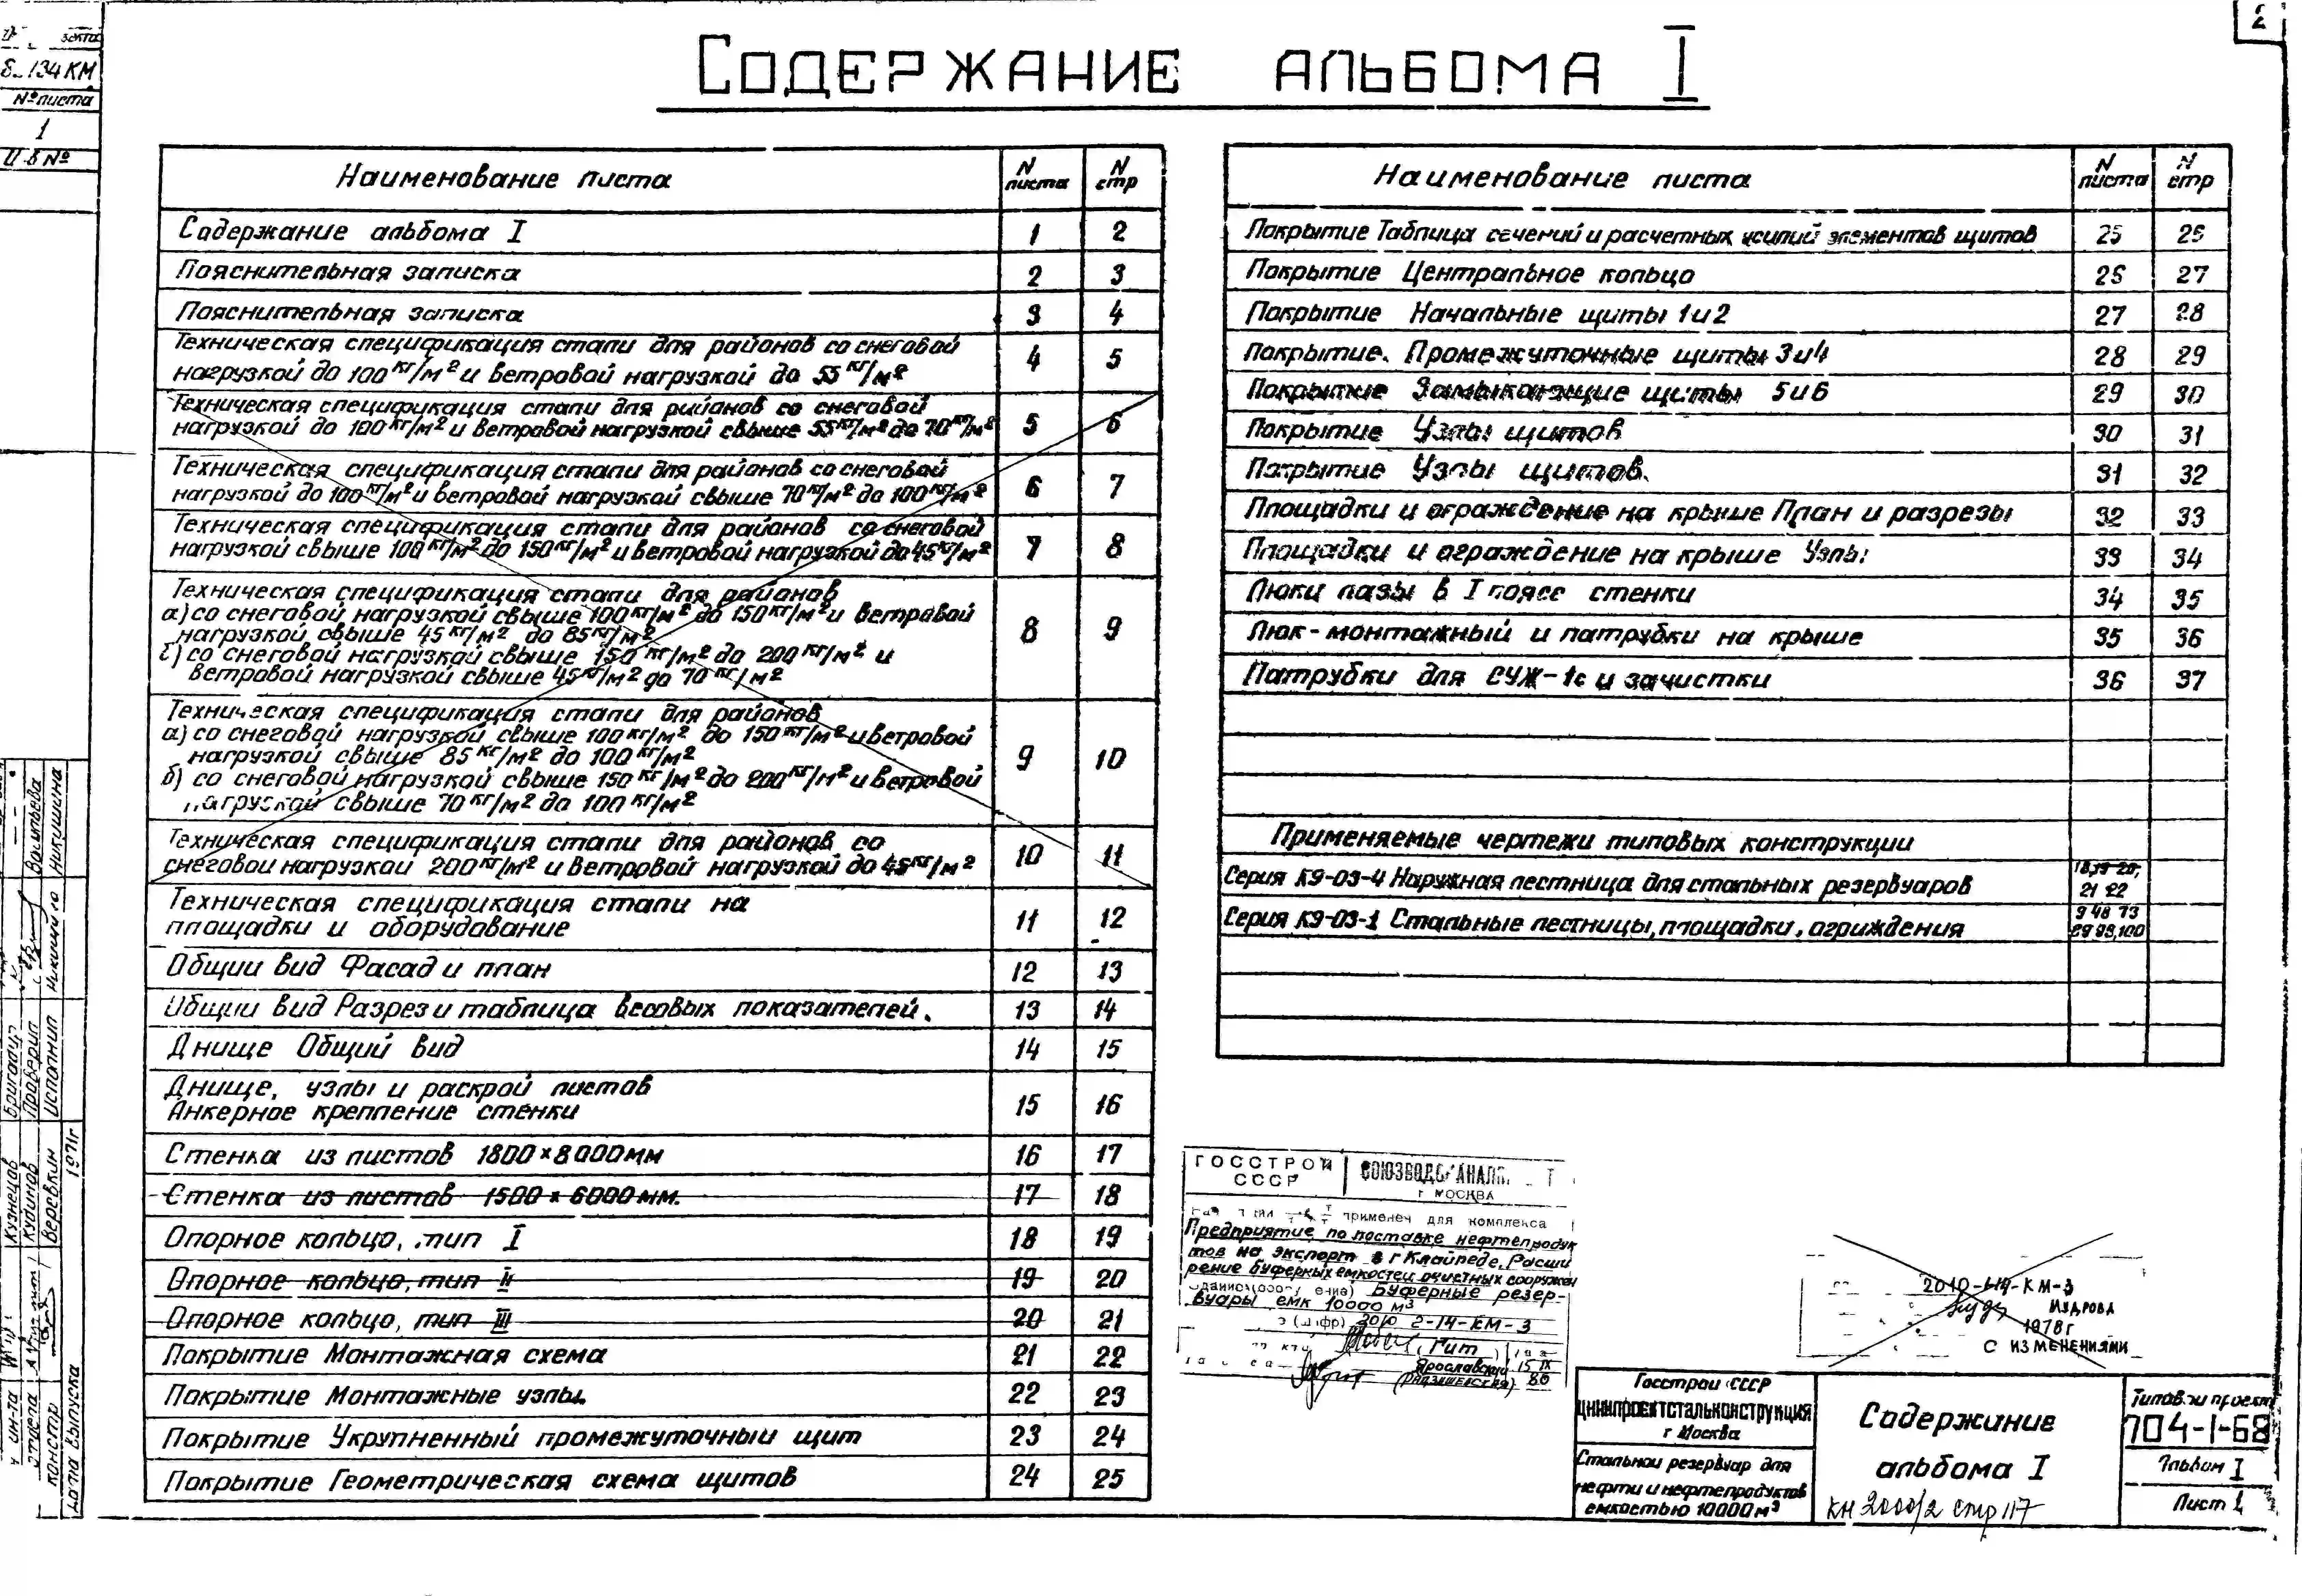 2
Содержание альбома I
134 КМ
№ листа
1
Наименование листа
N листа
N стр
Содержание альбома I 1 2
Пояснительная записка 2 3
Пояснительная записка 3 4
Техническая спецификация стали для районов со снеговой
нагрузкой до 100 кг/м² и ветровой нагрузкой до 55 кг/м² 4 5
Техническая спецификация стали для районов со снеговой
нагрузкой до 100 кг/м² и ветровой нагрузкой свыше 55 кг/м² до 70 кг/м² 5 6
Техническая спецификация стали для районов со снеговой
нагрузкой до 100 кг/м² и ветровой нагрузкой свыше 70 кг/м² до 100 кг/м² 6 7
Техническая спецификация стали для районов со снеговой
нагрузкой свыше 100 кг/м² до 150 кг/м² и ветровой нагрузкой до 45 кг/м² 7 8
Техническая спецификация стали для районов
а) со снеговой нагрузкой свыше 100 кг/м² до 150 кг/м² и ветровой
нагрузкой свыше 45 кг/м² до 85 кг/м²
б) со снеговой нагрузкой свыше 150 кг/м² до 200 кг/м² и
ветровой нагрузкой свыше 45 кг/м² до 70 кг/м² 8 9
Техническая спецификация стали для районов
а) со снеговой нагрузкой свыше 100 кг/м² до 150 кг/м² и ветровой
нагрузкой свыше 85 кг/м² до 100 кг/м²
б) со снеговой нагрузкой свыше 150 кг/м² до 200 кг/м² и ветровой
нагрузкой свыше 70 кг/м² до 100 кг/м² 9 10
Техническая спецификация стали для районов со
снеговой нагрузкой 200 кг/м² и ветровой нагрузкой до 45 кг/м² 10 11
Техническая спецификация стали на
площадки и оборудование 11 12
Общий вид Фасад и план 12 13
Общий вид Разрез и таблица весовых показателей. 13 14
Днище Общий вид 14 15
Днище, узлы и раскрой листов
Анкерное крепление стенки 15 16
Стенка из листов 1800×8000мм 16 17
Стенка из листов 1500×6000мм. 17 18
Опорное кольцо, тип I 18 19
Опорное кольцо, тип II 19 20
Опорное кольцо, тип III 20 21
Покрытие Монтажная схема 21 22
Покрытие Монтажные узлы. 22 23
Покрытие Укрупненный промежуточный щит 23 24
Покрытие Геометрическая схема щитов 24 25
Наименование листа
N листа
N стр
Покрытие Таблица сечений и расчетных усилий элементов щитов 25 26
Покрытие Центральное кольцо 26 27
Покрытие Начальные щиты 1 и 2 27 28
Покрытие. Промежуточные щиты 3 и 4 28 29
Покрытие Замыкающие щиты 5 и 6 29 30
Покрытие Узлы щитов 30 31
Покрытие Узлы щитов. 31 32
Площадки и ограждение на крыше План и разрезы 32 33
Площадки и ограждение на крыше Узлы 33 34
Люки лазы в I поясе стенки 34 35
Люк-монтажный и патрубки на крыше 35 36
Патрубки для СУЖ-1с и зачистки 36 37
Применяемые чертежи типовых конструкции
Серия КЭ-03-4 Наружная лестница для стальных резервуаров 18,19 20, 21 22
Серия КЭ-03-1 Стальные лестницы, площадки, ограждения 9 48 73 99,100
ГОССТРОЙ СССР
г МОСКВА
применен для комплекса
Предприятие по поставке нефтепродук
тов на экспорт в г Клайпеде, Расши
рение буферных емкостей очистных сооружен
Буферные резер-
вуары емк 10000 м³
(шифр) 2010 2-14-КМ-3
Гит
Ярославский 15 IX
80
2010-614-КМ-3
Мудрова
1978г
С ИЗМЕНЕНИЯМИ
Госстрой СССР
ЦНИИПРОЕКТСТАЛЬКОНСТРУКЦИЯ
г Москва
Стальной резервуар для
нефти и нефтепродуктов
емкостью 10000м³
Содержание
альбома I
КН 2000/2 стр 117
Типовой проект
704-1-68
Альбом I
Лист 1
Васильева
Никушина
Бригадир
Проверил
Исполнил
Кузнецов
Кудинов
Веревкин
1971г
ин-та
отдела
констр
Дата выпуска